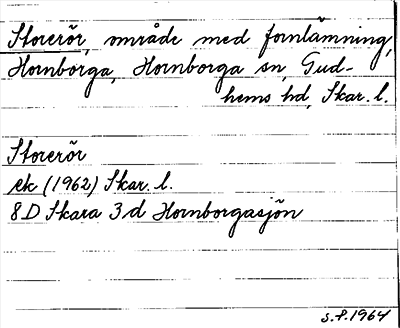 Storerör, område med fornlämning,
Hornborga, Hornborga sn, Gud-
hems hd, Skar. l.
Storerör
ek (1962) Skar. l.
8D Skara 3d Hornborgasjön
S.P. 1964